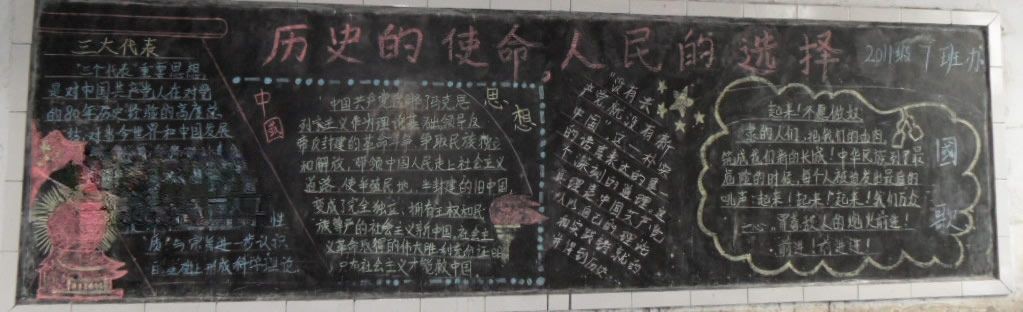 历史的使命,人民的选择
2011级7班办
三大代表
"三个代表"重要思想,
是对中国共产党人在对党
的80年历史经验的高度总
结,对当今世界和中国发展
性
质与完善进一步认识
基础上形成科学理论
中國
思想
中国共产党
主义作为理论基础领导反
帝反封建的革命斗争,争取民族独立
和解放,带领中国人民走上社会主义
道路,使半殖民地,半封建的旧中国,
变成了完全独立、拥有主权和民
族尊严的社会主义新中国,在
义革命取得的伟大胜利充分证明
只有社会主义才能救中国.
"没有共
产党就没有新
中国"这一朴实
的话语表达的是一
个深刻的道理,这
真理是中国共产党
人以自己的
和实践
才得到
國歌
起来!不愿做奴
隶的人们,把我们的血肉,
筑成我们新的长城!中华民族到了最
危险的时候,每个人被迫发出最后的
吼声:起来!起来!起来!我们万众
一心,冒着敌人的炮火前进!
前进!前进进!